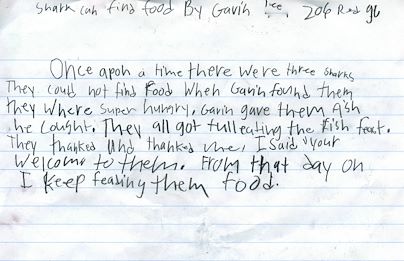 Shark can find food By Gavin
Once apoh a time there were three sharks
They could not find Food When Gavin found them
they where super hungry. Gavin gave them fish
he cought. They all got full eating the fish feast.
They thanked and thanked me, I said "your
Welcome to them. From that day on
I keep feading them food.